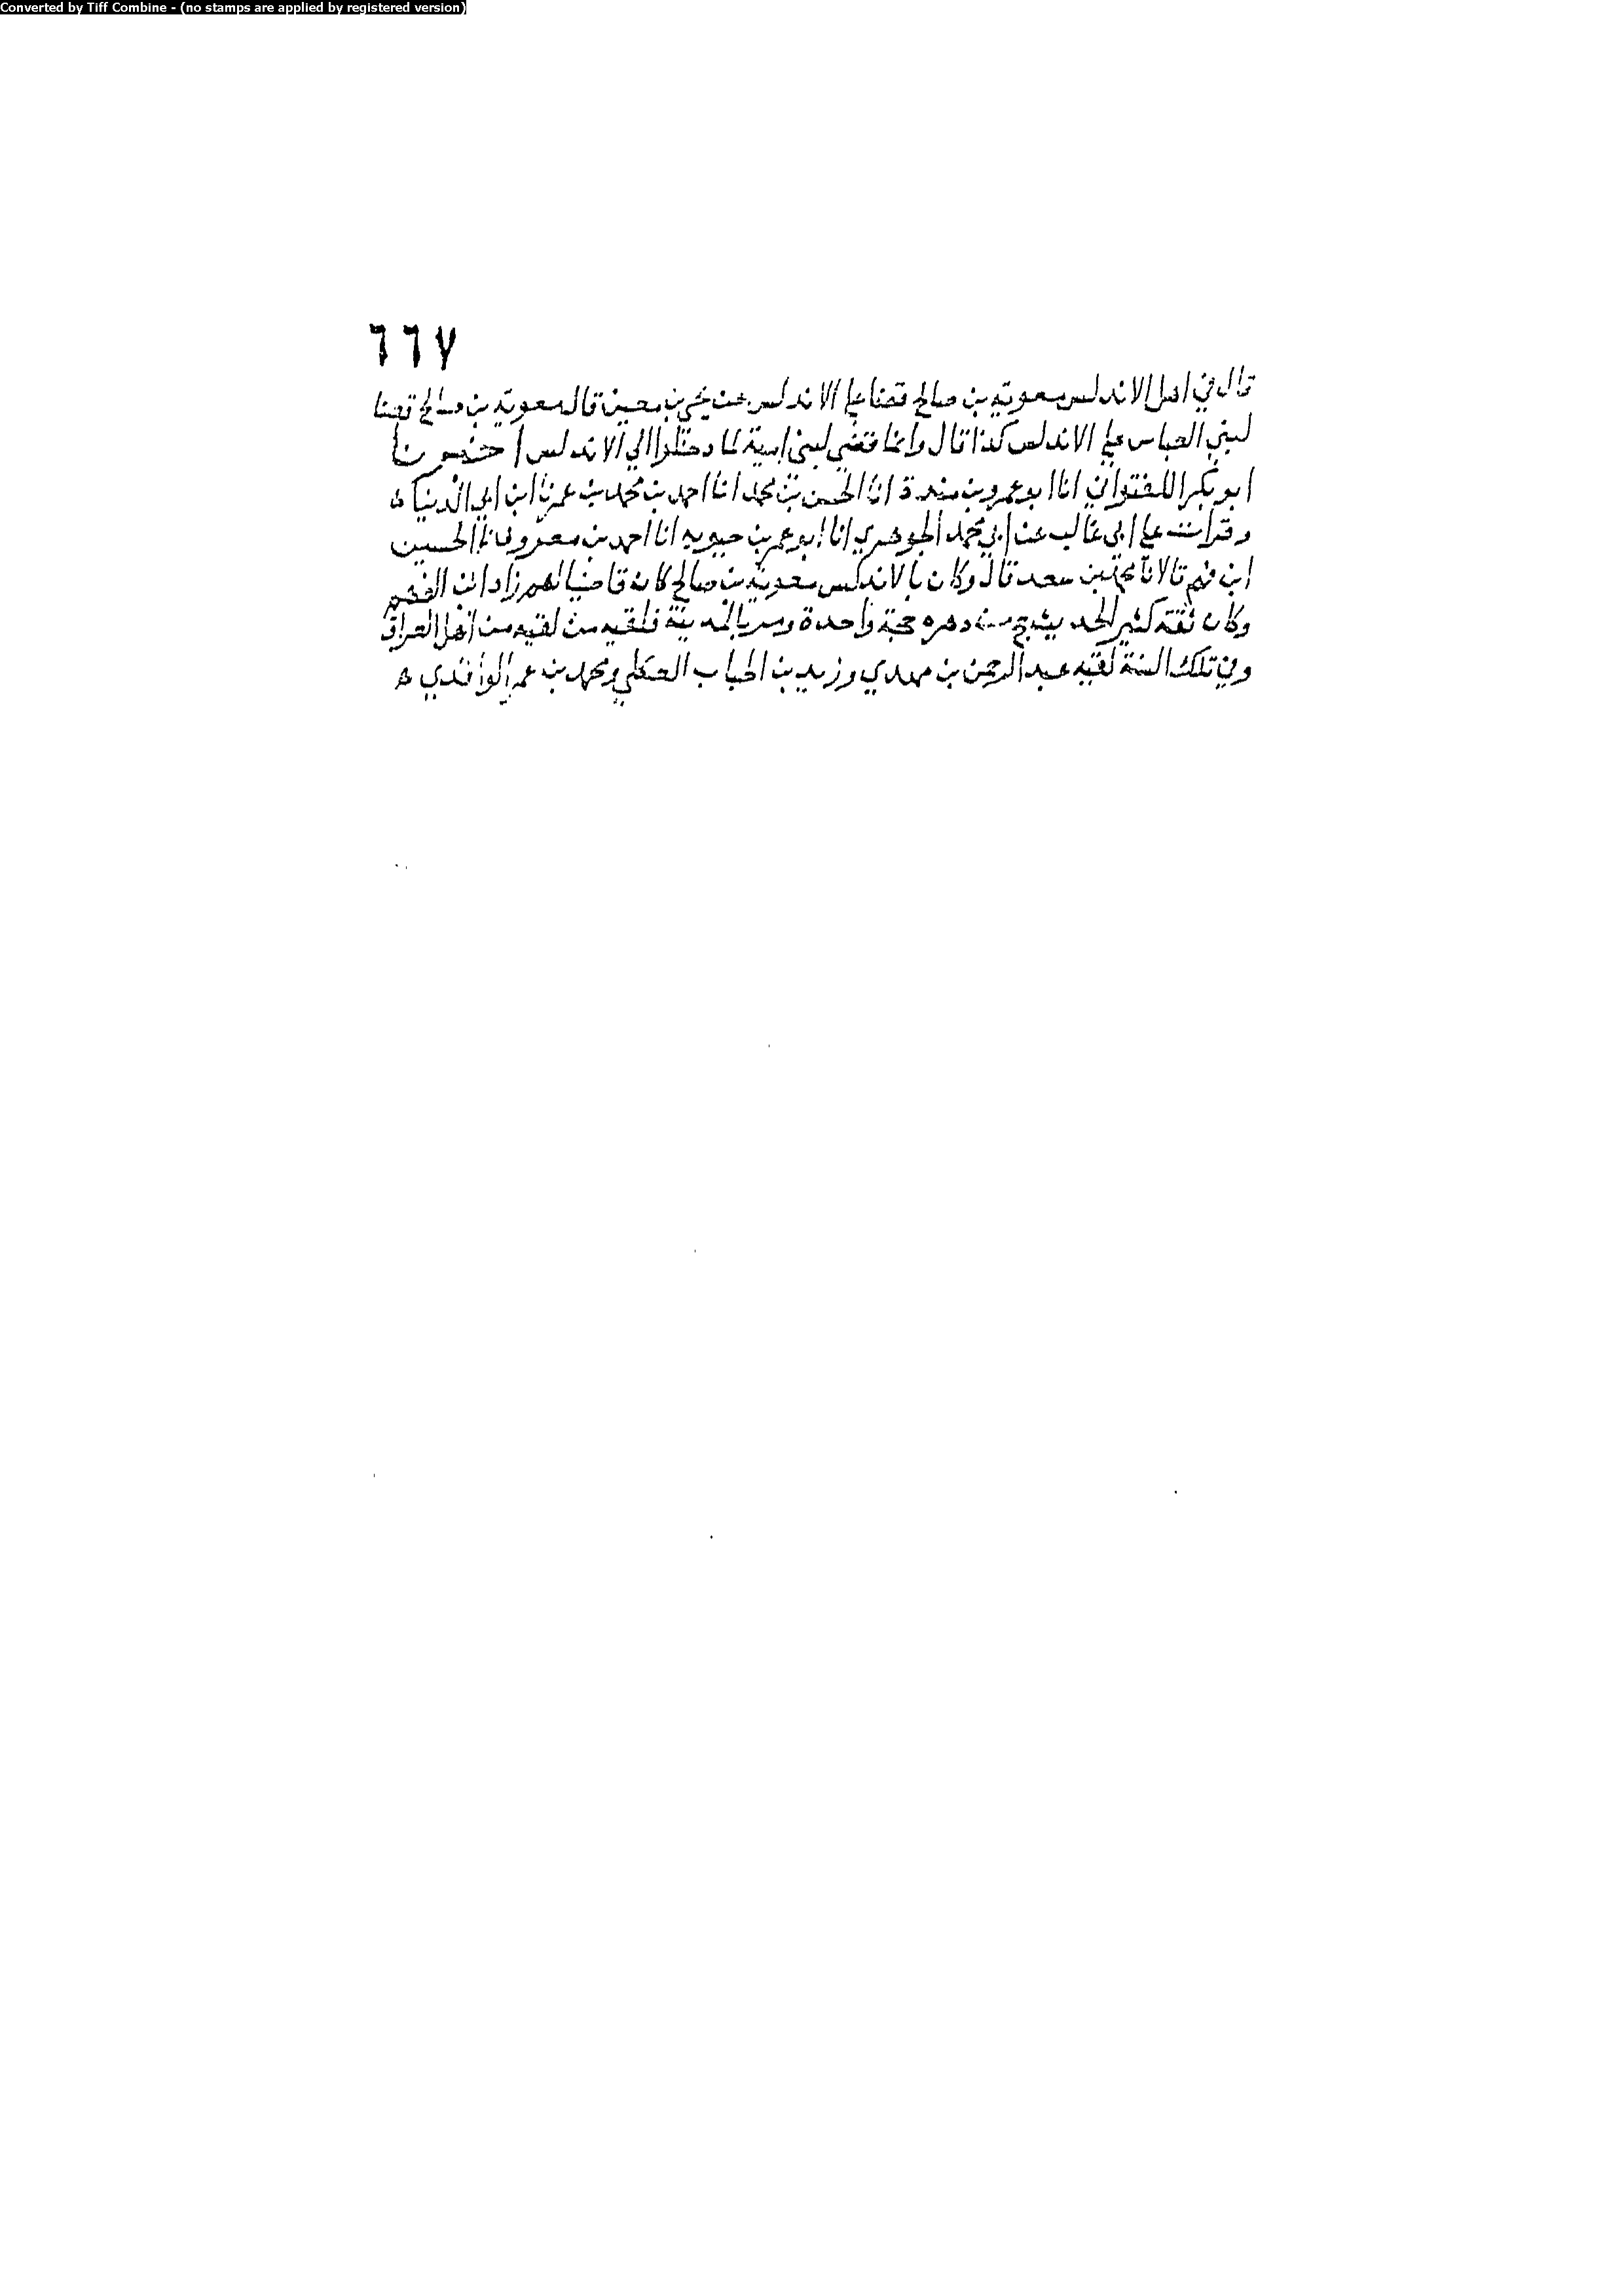 Converted by Tiff Combine - (no stamps are applied by registered version)
٦٦٧
قال في اهل الاندلس معوية بن صالح قضا على الاندلس عن يحيى بن معين قال معوية بن صالح قضا
لبني العباس على الاندلس كذا قال وانما قضى لبنى امية لما دخلوا الي الاندلس اخبرنا
ابو بكر اللفتواني انا ابو عمرو بن مندة انا الحسن بن محمد انا احمد بن محمد بن عمر نا ابن ابي الدنيا ه
وقرات على ابى غالب عن ابي محمد الجوهري انا ابو عمر بن حيويه انا احمد بن معروف نا الحسين
ابن فهم قالا نا محمد بن سعد قال وكان بالاندلس معوية بن صالح كان قاضيا لهم زاد ابن الفهم
وكان ثقة كثير الحديث حج من دهره حجة واحدة ومر بالمدينة فلقيه من لقيه من اهل العراق
وفي تلك السنة لقيه عبد الرحمن بن مهدي وزيد بن الحباب العكلي ومحمد بن عمر الواقدي ه